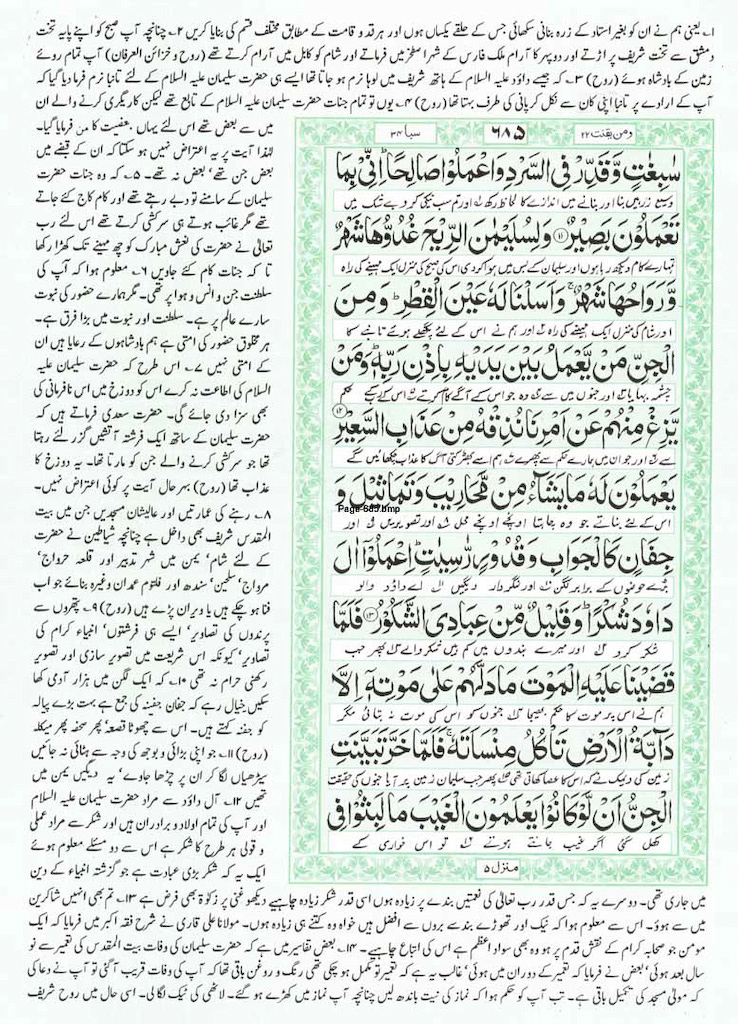 ۱۔ یعنی ہم نے ان کو بغیر استاد کے زرہ بنانی سکھائی جس کے حلقے یکساں ہوں اور ہر قد و قامت کے مطابق مختلف قسم کی بنایا کریں ۲۔ چنانچہ آپ صبح کو اپنے پایہ تخت
دمشق سے تخت شریف پر اڑتے اور دوپہر کا آرام ملک فارس کے شہر اصطخر میں فرماتے اور شام کو کابل میں آرام کرتے تھے (روح و خزائن العرفان) آپ تمام روئے
زمین کے بادشاہ ہوئے (روح) ۳۔ کہ جیسے داؤد علیہ السلام کے ہاتھ شریف میں لوہا نرم ہو جاتا تھا ایسے ہی حضرت سلیمان علیہ السلام کے لئے تانبا نرم فرما دیا گیا کہ
آپ کے ارادے پر تانبا اپنی کان سے نکل کر پانی کی طرف بہتا تھا (روح) ۴۔ یوں تو تمام جنات حضرت سلیمان علیہ السلام کے تابع تھے لیکن کاریگری کرنے والے ان
میں سے بعض تھے اس لئے یہاں بعضیت کا من فرمایا گیا۔
لہذا آیت پر یہ اعتراض نہیں ہو سکتا کہ ان کے قبضے میں
بعض جن تھے بعض نہ تھے۔ ۵۔ کہ وہ جنات حضرت
سلیمان کے سامنے تو دبے رہتے تھے اور کام کاج کئے جاتے
تھے مگر غائب ہوتے ہی سرکشی کرتے تھے اس لئے رب
تعالیٰ نے حضرت کی نعش مبارک کو چھ مہینے تک کھڑا رکھا
تا کہ جنات کام کئے جاویں ۶۔ معلوم ہوا کہ آپ کی
سلطنت جن و انس و ہوا پر تھی۔ مگر ہمارے حضور کی نبوت
سارے عالم پر ہے۔ سلطنت اور نبوت میں بڑا فرق ہے۔
ہر مخلوق حضور کی امتی ہے ہم بادشاہوں کے رعایا ہیں ان
کے امتی نہیں ۷۔ اس طرح کہ حضرت سلیمان علیہ
السلام کی اطاعت نہ کرے اس کو دوزخ میں اس نافرمانی کی
بھی سزا دی جائے گی۔ حضرت سعدی فرماتے ہیں کہ
حضرت سلیمان کے ساتھ ایک فرشتہ آتشیں گرز لئے رہتا
تھا جو سرکشی کرنے والے جن کو مارتا تھا۔ یہ دوزخ کا
عذاب تھا (روح) بہر حال آیت پر کوئی اعتراض نہیں۔
۸۔ رہنے کی عمارتیں اور عالیشان مسجدیں جن میں بیت
المقدس شریف بھی داخل ہے چنانچہ شیاطین نے حضرت
کے لئے شام، یمن میں شہر تدبیر اور قلعہ حرواج،
مرواج، سلحین، سندھ اور فلتوم عمدان وغیرہ بنائے جو اب
فنا ہو چکے ہیں یا ویران پڑے ہیں (روح) ۹۔ پتھروں سے
پرندوں کی تصاویر، ایسے ہی فرشتوں، انبیاء کرام کی
تصاویر، کیونکہ اس شریعت میں تصویر سازی اور تصویر
رکھنی حرام نہ تھی ۱۰۔ کہ ایک لگن میں ہزار آدمی کھا
سکیں خیال رہے کہ جفان جفنہ کی جمع ہے بہت بڑے پیالہ
کو جفنہ کہتے ہیں۔ اس سے چھوٹا قصعہ، پھر صحفہ پھر میکلہ
(روح) ۱۱۔ جو اپنی بڑائی و بوجھ کی وجہ سے ہٹائی نہ جائیں
سیڑھیاں لگا کر ان پر چڑھا جاوے، یہ دیگیں یمن میں
تھیں ۱۲۔ آل داؤد سے مراد حضرت سلیمان علیہ السلام
اور آپ کی تمام اولاد و برادران ہیں اور شکر سے مراد عملی
و قولی ہر طرح کا شکر ہے اس سے دو مسئلے معلوم ہوئے
ایک یہ کہ شکر بڑی عبادت ہے جو گزشتہ انبیاء کے دین
ومن یقنت ۲۲
۶۸۵
سبا ۳۴
سٰبِغٰتٍ وَّ قَدِّرْ فِی السَّرْدِ وَ اعْمَلُوْا صَالِحًا ؕ اِنِّیْ بِمَا
وسیع زرہیں بنا اور بنانے میں اندازے کا لحاظ رکھ ۱ اور تم سب نیکی کرو بے شک میں
تَعْمَلُوْنَ بَصِیْرٌ ۝۱۱ وَ لِسُلَیْمٰنَ الرِّیْحَ غُدُوُّهَا شَهْرٌ
تمہارے کام دیکھ رہا ہوں اور سلیمان کے بس میں ہوا کر دی اس کی صبح کی منزل ایک مہینے کی راہ
وَّ رَوَاحُهَا شَهْرٌ ۚ وَ اَسَلْنَا لَهٗ عَیْنَ الْقِطْرِ ؕ وَ مِنَ
اور شام کی منزل ایک مہینے کی راہ ۲ اور ہم نے اس کے لئے پگھلے ہوئے تانبے کا
الْجِنِّ مَنْ یَّعْمَلُ بَیْنَ یَدَیْهِ بِاِذْنِ رَبِّهٖ ؕ وَ مَنْ
چشمہ بہایا ۳ اور جنوں میں سے ۴ وہ جو اس کے آگے کام کرتے ۵ اس کے رب کے حکم
یَّزِغْ مِنْهُمْ عَنْ اَمْرِنَا نُذِقْهُ مِنْ عَذَابِ السَّعِیْرِ ۝۱۲
سے ۶ اور جو ان میں ہمارے حکم سے پھرے ۷ ہم اسے بھڑکتی آگ کا عذاب چکھائیں گے
یَعْمَلُوْنَ لَهٗ مَا یَشَآءُ مِنْ مَّحَارِیْبَ وَ تَمَاثِیْلَ وَ
Page-685.bmp
اس کے لئے بناتے جو وہ چاہتا اونچے اونچے محل ۸ اور تصویریں ۹ اور
جِفَانٍ كَالْجَوَابِ وَ قُدُوْرٍ رّٰسِیٰتٍ ؕ اِعْمَلُوْۤا اٰلَ
بڑے حوضوں کے برابر لگن ۱۰ اور لنگر دار دیگیں ۱۱ اے داؤد والو
دَاوٗدَ شُكْرًا ؕ وَ قَلِیْلٌ مِّنْ عِبَادِیَ الشَّكُوْرُ ۝۱۳ فَلَمَّا
شکر کرو ۱۲ اور میرے بندوں میں کم ہیں شکر والے ۱۳ پھر جب
قَضَیْنَا عَلَیْهِ الْمَوْتَ مَا دَلَّهُمْ عَلٰی مَوْتِهٖۤ اِلَّا
ہم نے اس پر موت کا حکم بھیجا ۱۴ جنوں کو اس کی موت نہ بتائی مگر
دَآبَّةُ الْاَرْضِ تَاْكُلُ مِنْسَاَتَهٗ ۚ فَلَمَّا خَرَّ تَبَیَّنَتِ
زمین کی دیمک نے کہ اس کا عصا کھاتی تھی پھر جب سلیمان زمین پر آیا جنوں کی حقیقت
الْجِنُّ اَنْ لَّوْ كَانُوْا یَعْلَمُوْنَ الْغَیْبَ مَا لَبِثُوْا فِی
کھل گئی اگر غیب جانتے ہوتے تو اس خواری کے
منزل ۵
میں جاری تھی۔ دوسرے یہ کہ جس قدر رب تعالیٰ کی نعمتیں بندے پر زیادہ ہوں اسی قدر شکر زیادہ چاہیے دیکھو غنی پر زکوٰۃ بھی فرض ہے ۱۳۔ تم بھی انہیں شاکرین
میں سے ہوؤ۔ اس سے معلوم ہوا کہ نیک اور تھوڑے بندے بروں سے افضل ہیں خواہ وہ کتنے ہی زیادہ ہوں۔ مولانا علی قاری نے شرح فقہ اکبر میں فرمایا کہ ایک
مومن جو صحابہ کرام کے نقش قدم پر ہو وہ بھی سواد اعظم ہے اس کی اتباع چاہیے۔ ۱۴۔ بعض تفاسیر میں ہے کہ حضرت سلیمان کی وفات بیت المقدس کی تعمیر سے نو
سال بعد ہوئی، بعض نے فرمایا کہ تعمیر کے دوران میں ہوئی، غالب یہ ہے کہ تعمیر تو مکمل ہو چکی تھی رنگ و روغن باقی تھا کہ آپ کی وفات قریب آ گئی تو آپ نے دعا کی
کہ مولیٰ مسجد کی تکمیل باقی ہے۔ تب آپ کو حکم ہوا کہ نماز کی نیت باندھ لیں چنانچہ آپ نماز میں کھڑے ہو گئے۔ لاٹھی کی ٹیک لگا لی۔ اسی حال میں روح شریف